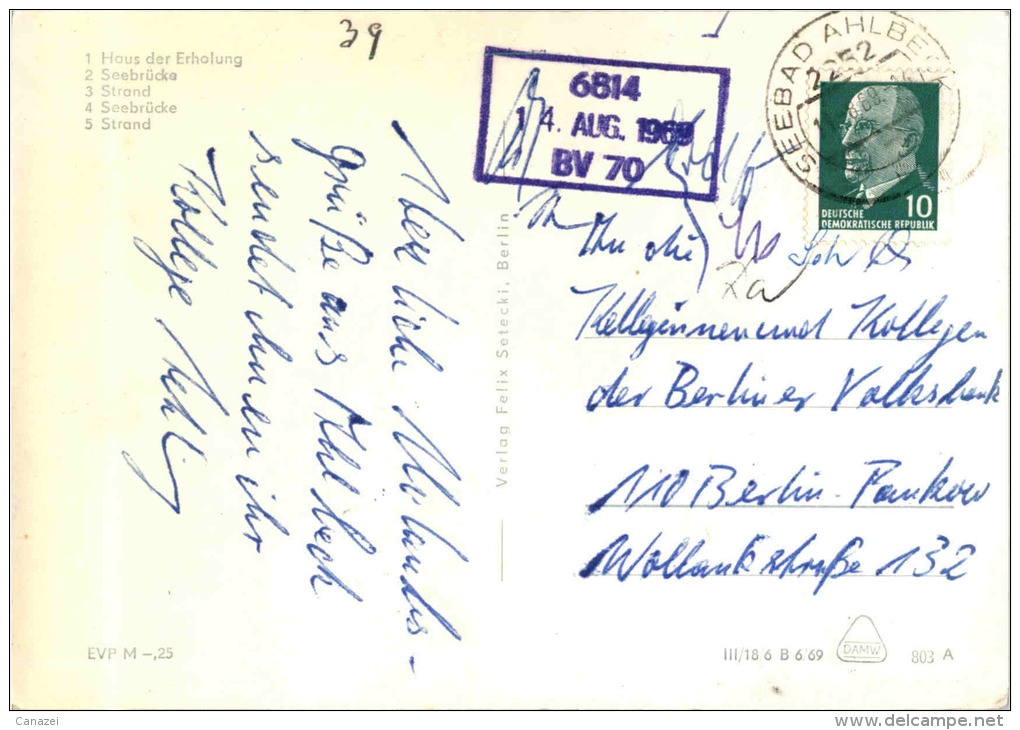 39
1 Haus der Erholung
2 Seebrücke
3 Strand
4 Seebrücke
5 Strand
6814
14. AUG. 1969
BV 70
SEEBAD AHLBECK
2252
DEUTSCHE
DEMOKRATISCHE REPUBLIK
10
Herzliche Urlaubs-
grüße aus Ahlbeck
sendet Ihnen ihr
Kollege
Verlag Felix Setecki, Berlin
An die
Kolleginnen und Kollegen
der Berliner Volksbank
110 Berlin-Pankow
Wollankstraße 132
EVP M –,25
III/18 6 B 6/69
DAMW
803 A
Canazei
www.delcampe.net